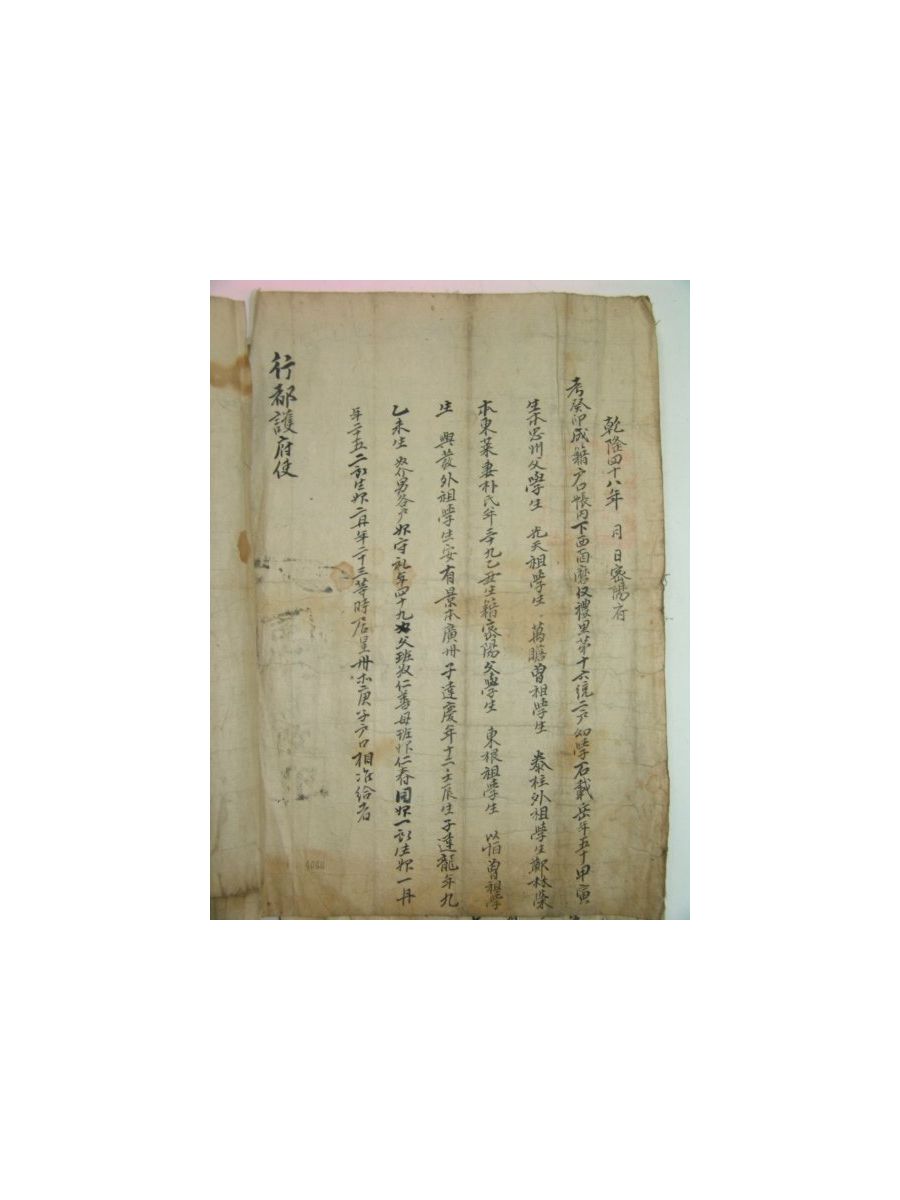 乾隆四十八年 月 日密陽府
考癸卯成籍戶口帳內下西面 禮里第十六統二戶幼學石載岳年五十甲寅
生本忠州父學生 光天祖學生 萬瞻曾祖學生 泰柱外祖學生鄭林榮
本東萊妻朴氏年三十九乙丑生籍密陽父學生 東根祖學生 以怕曾祖學
生 興發外祖學生安有景本廣州子達慶年十二壬辰生子達龍年九
乙未生 戶婢守礼年四十九父班奴仁善母班婢仁春同婢一所生婢一丹
年二十五二所生婢二丹年二十三等時居呈卅 庚子戶口相准給者
行都護府使